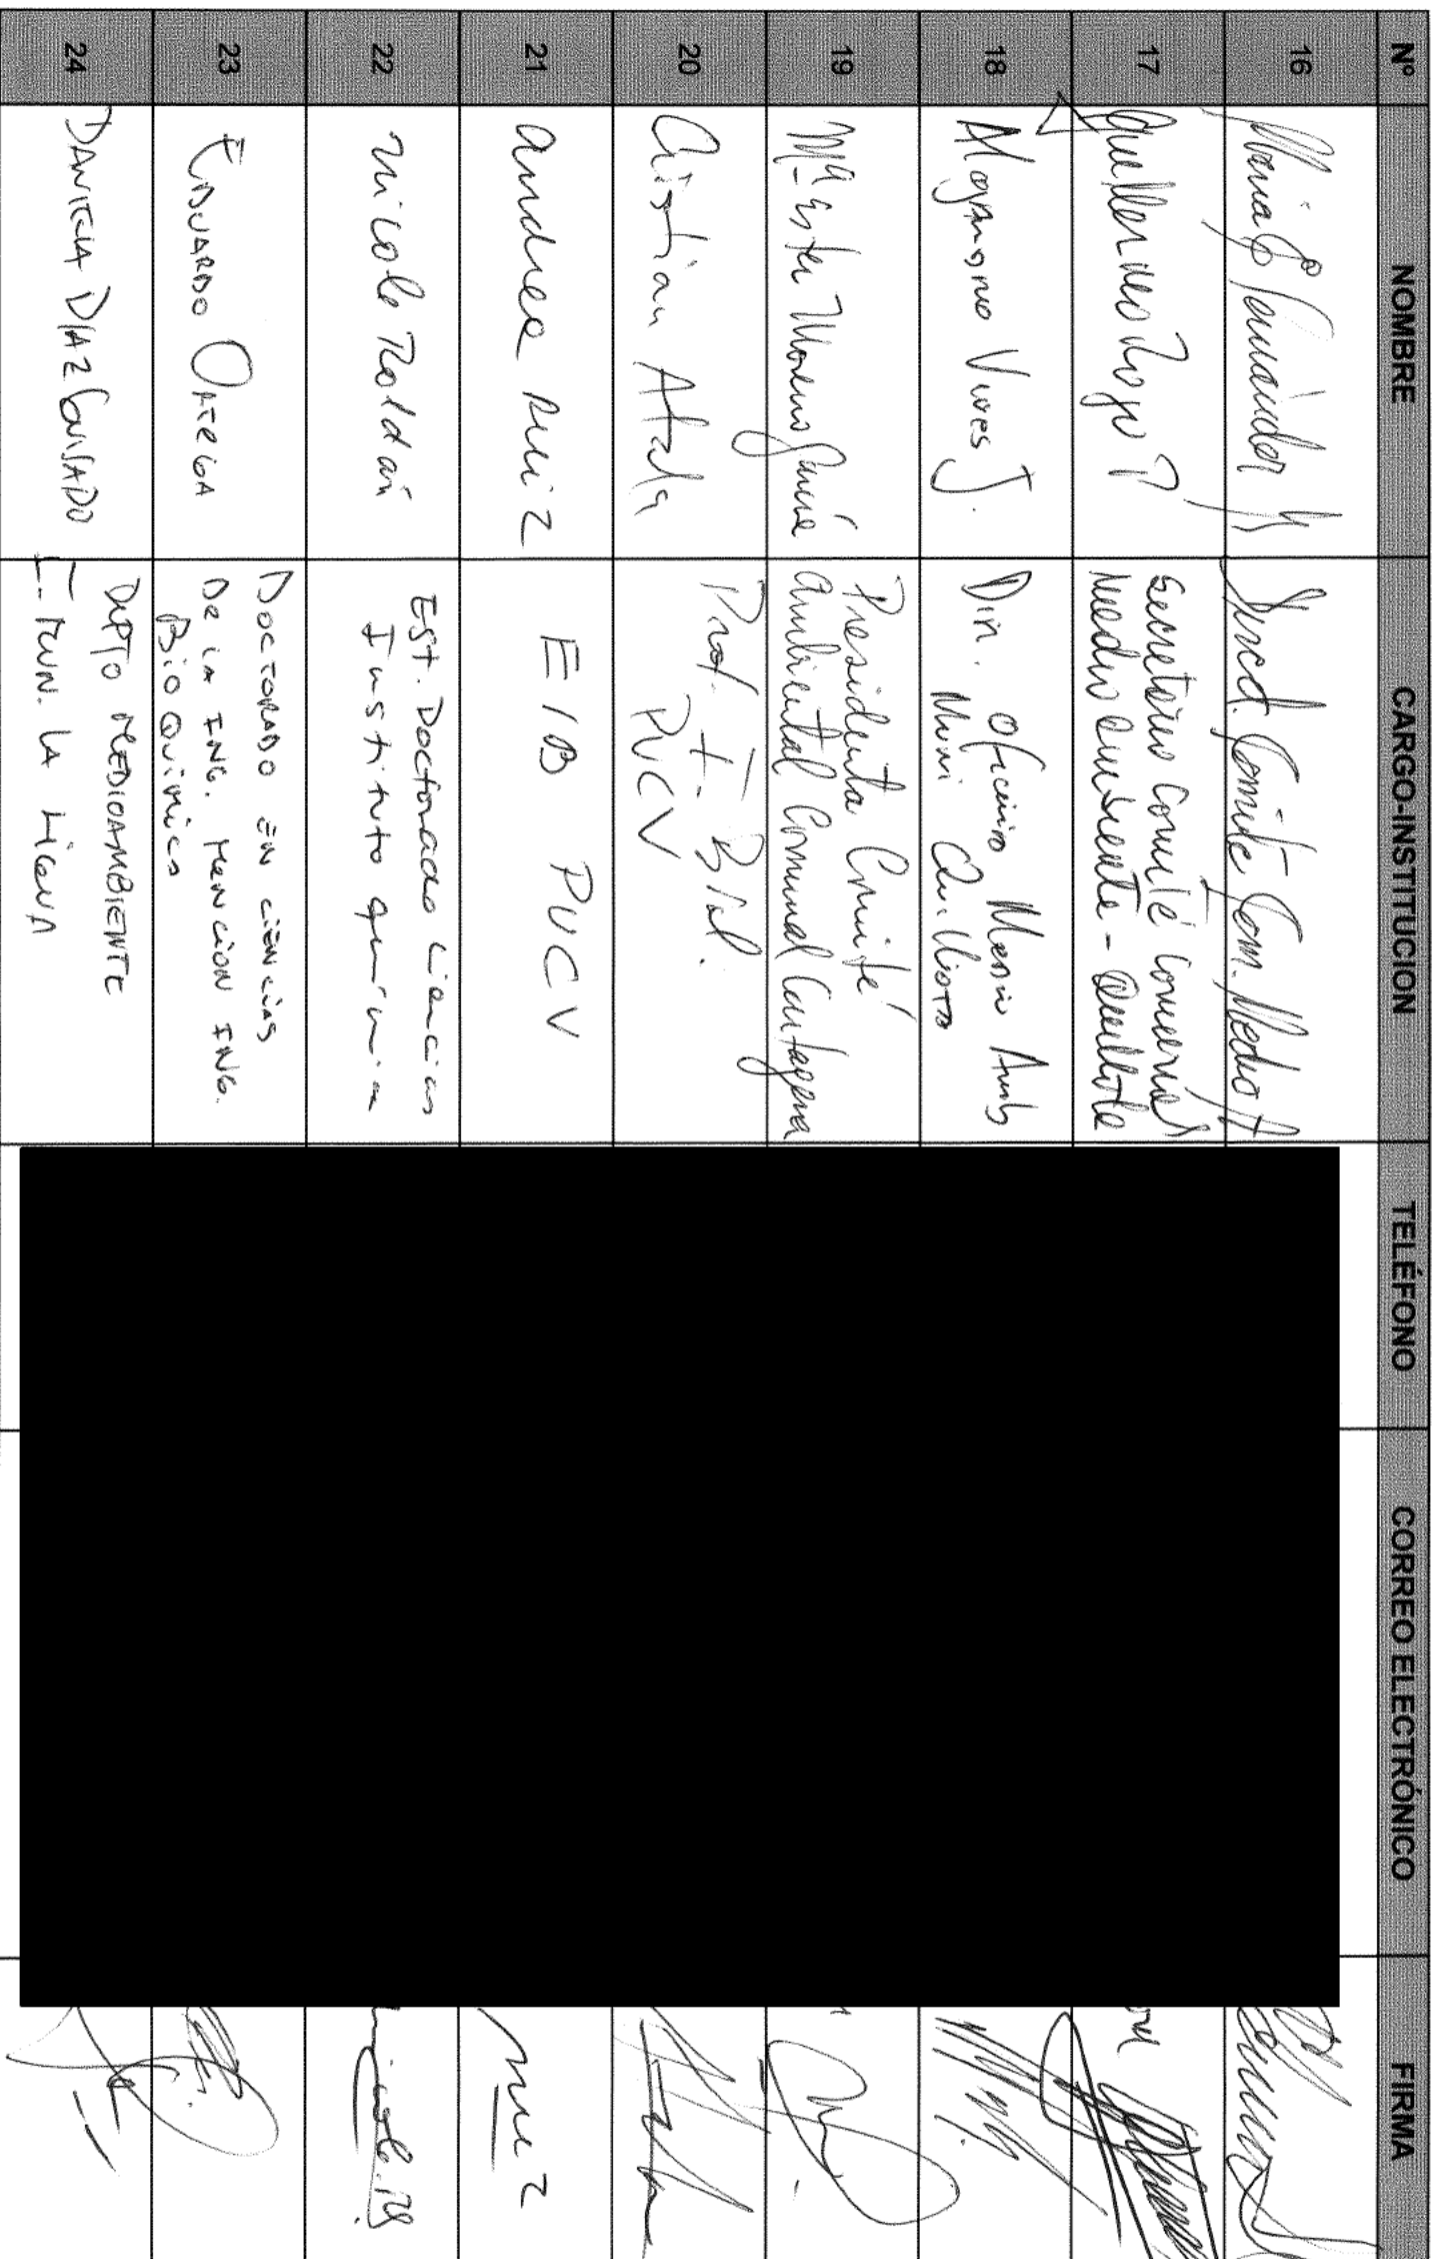 Nº NOMBRE CARGO-INSTITUCION TELÉFONO CORREO ELECTRÓNICO FIRMA
16 Maria Fernández M Com. Medio A
17 Guillermo Rojo P Secretario Comité Comunal
Medio Ambiente - Quillota
18 Vives J. Dir. Oficina Medio Amb
Muni Quillota
19 Mª Ester Moreno Presidenta Comité
ambiental Comunal Cartagena
20 Cristian Prof. E. Biol.
PUCV
21 andrea Ruiz EIB PUCV
22 nicole Roldán Est. Doctorado Ciencias
Instituto química
nicole.R.
23 EDUARDO ORTEGA DOCTORADO EN CIENCIAS
De la ING. MENCION ING.
BioQuimica
24 DANIELA DIAZ GUISADO DEPTO MEDIOAMBIENTE
I. MUN. LA LIGUA